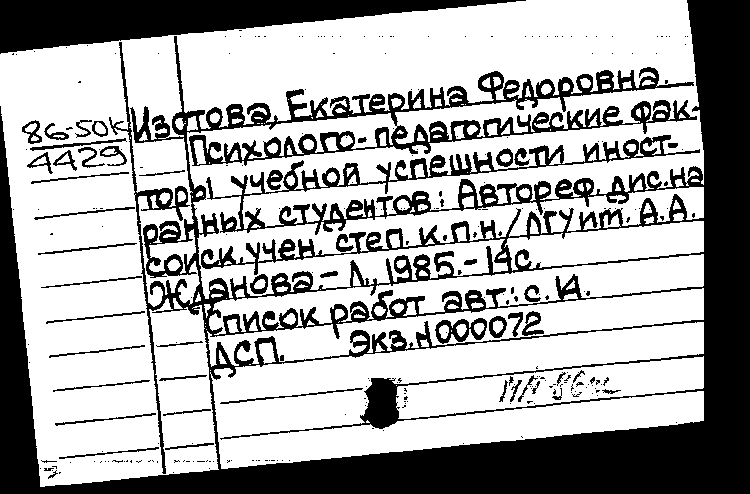 86-50К
4429
Изотова, Екатерина Федоровна.
Психолого-педагогические фак-
торы учебной успешности иност-
ранных студентов: Автореф. дис. на
соиск. учен. степ. к.п.н. / ЛГУ им. А.А.
Жданова. - Л., 1985. - 14с.
Список работ авт.: с. 14.
ДСП. Экз. N000072